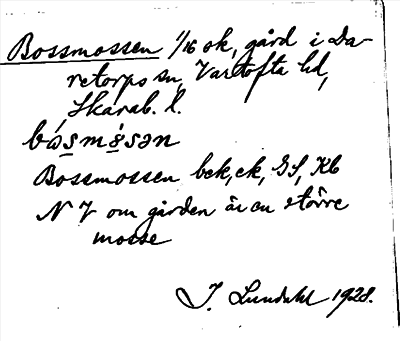 Bossmossen 1/16 sk, gård i Da-
retorps sn, Vartofta hd,
Skarab. l.
bósmòsən
Bossmossen bek, ek, GS, Kb
N V om gården är en större
mosse
J. Lundahl 1928.